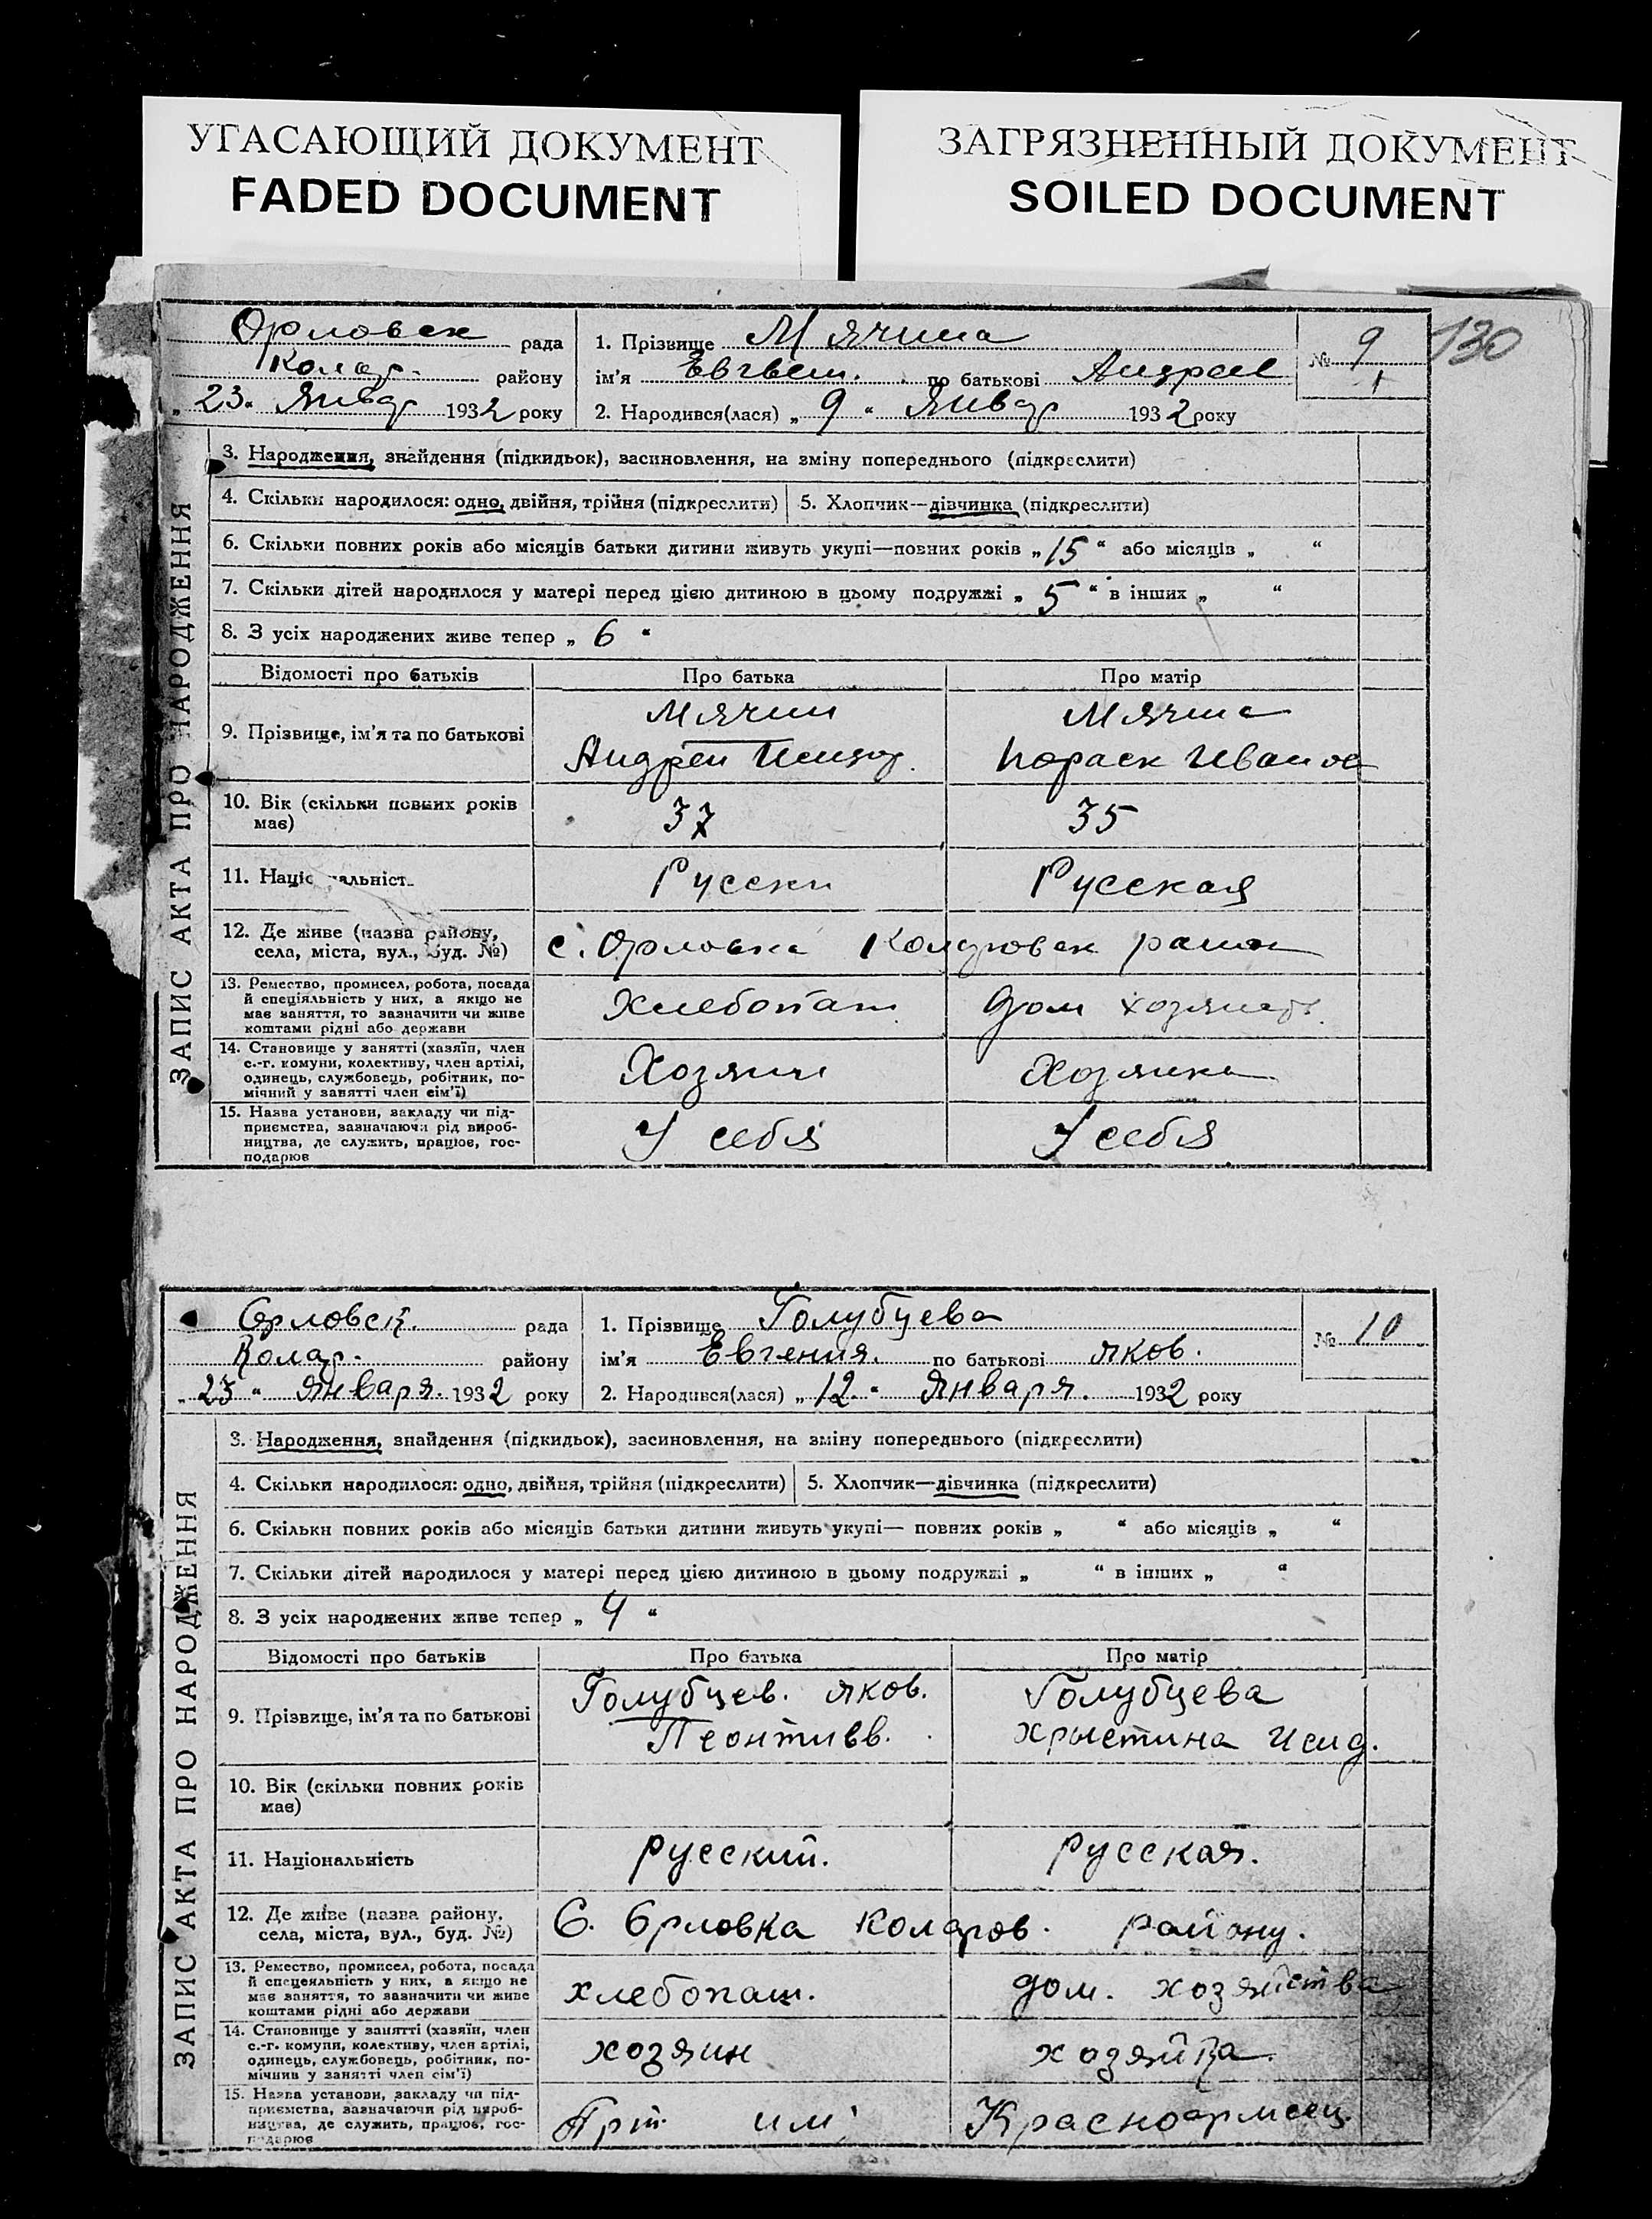 УГАСАЮЩИЙ ДОКУМЕНТ
FADED DOCUMENT
ЗАГРЯЗНЕННЫЙ ДОКУМЕНТ
SOILED DOCUMENT
130
Орловск рада
Колар. району
„23“ Январ 1932 року
1. Прізвище Мячина
ім'я по батькові Андреев
2. Народився(лася) „9“ Январ 1932 року
№ 9
ЗАПИС АКТА ПРО НАРОДЖЕННЯ
3. Народження, знайдення (підкидьок), засиновлення, на зміну попереднього (підкреслити)
4. Скільки народилося: одно, двійня, трійня (підкреслити) 5. Хлопчик—дівчинка (підкреслити)
6. Скільки повних років або місяців батьки дитини живуть укупі—повних років „15“ або місяців „ “
7. Скільки дітей народилося у матері перед цією дитиною в цьому подружжі „5“ в інших „ “
8. З усіх народжених живе тепер „6“
Відомості про батьків Про батька Про матір
9. Прізвище, ім'я та по батькові
Мячин Мячина
Андреи Параск Иванов
10. Вік (скільки повних років має) 37 35
11. Національність Русски Русская
12. Де живе (назва району,
села, міста, вул., буд. №) с. Орловка Коларовск район
13. Ремество, промисел, робота, посада
й спеціяльність у них, а якщо не
має заняття, то зазначити чи живе
коштами рідні або держави
Хлебопаш. дом хозяйств.
14. Становище у занятті (хазяїн, член
с.-г. комуни, колективу, член артілі,
одинець, службовець, робітник, по-
мічний у занятті член сім'ї)
Хозяин Хозяика
15. Назва установи, закладу чи під-
приємства, зазначаючи рід вироб-
ництва, де служить, працює, гос-
подарює
У себя У себя
Орловск. рада
Колар. району
„23“ Января. 1932 року
1. Прізвище Голубцева
ім'я Евгения. по батькові Яков.
2. Народився(лася) „12“ Января. 1932 року
№ 10
ЗАПИС АКТА ПРО НАРОДЖЕННЯ
3. Народження, знайдення (підкидьок), засиновлення, на зміну попереднього (підкреслити)
4. Скільки народилося: одно, двійня, трійня (підкреслити) 5. Хлопчик—дівчинка (підкреслити)
6. Скільки повних років або місяців батьки дитини живуть укупі— повних років „ “ або місяців „ “
7. Скільки дітей народилося у матері перед цією дитиною в цьому подружжі „ “ в інших „ “
8. З усіх народжених живе тепер „4“
Відомості про батьків Про батька Про матір
9. Прізвище, ім'я та по батькові
Голубцев. Яков. Голубцева
Леонтивв. Хрыстина Исид.
10. Вік (скільки повних років
має)
11. Національність русский. русская.
12. Де живе (назва району,
села, міста, вул., буд. №) С. Орловка Коларов. району.
13. Ремество, промисел, робота, посада
й спецеяльність у них, а якщо не
має заняття, то зазначити чи живе
коштами рідні або держави
хлебопаш. дом. хозяйства
14. Становище у занятті (хазяїн, член
с.-г. комуни, колективу, член артілі,
одинець, службовець, робітник, по-
мічнив у занятті член сім'ї)
хозяин хозяйка.
15. Назва установи, закладу чи під-
приємства, зазначаючи рід вироб-
ництва, де служить, працює, гос-
подарює
Арт. им. Красноармеец.